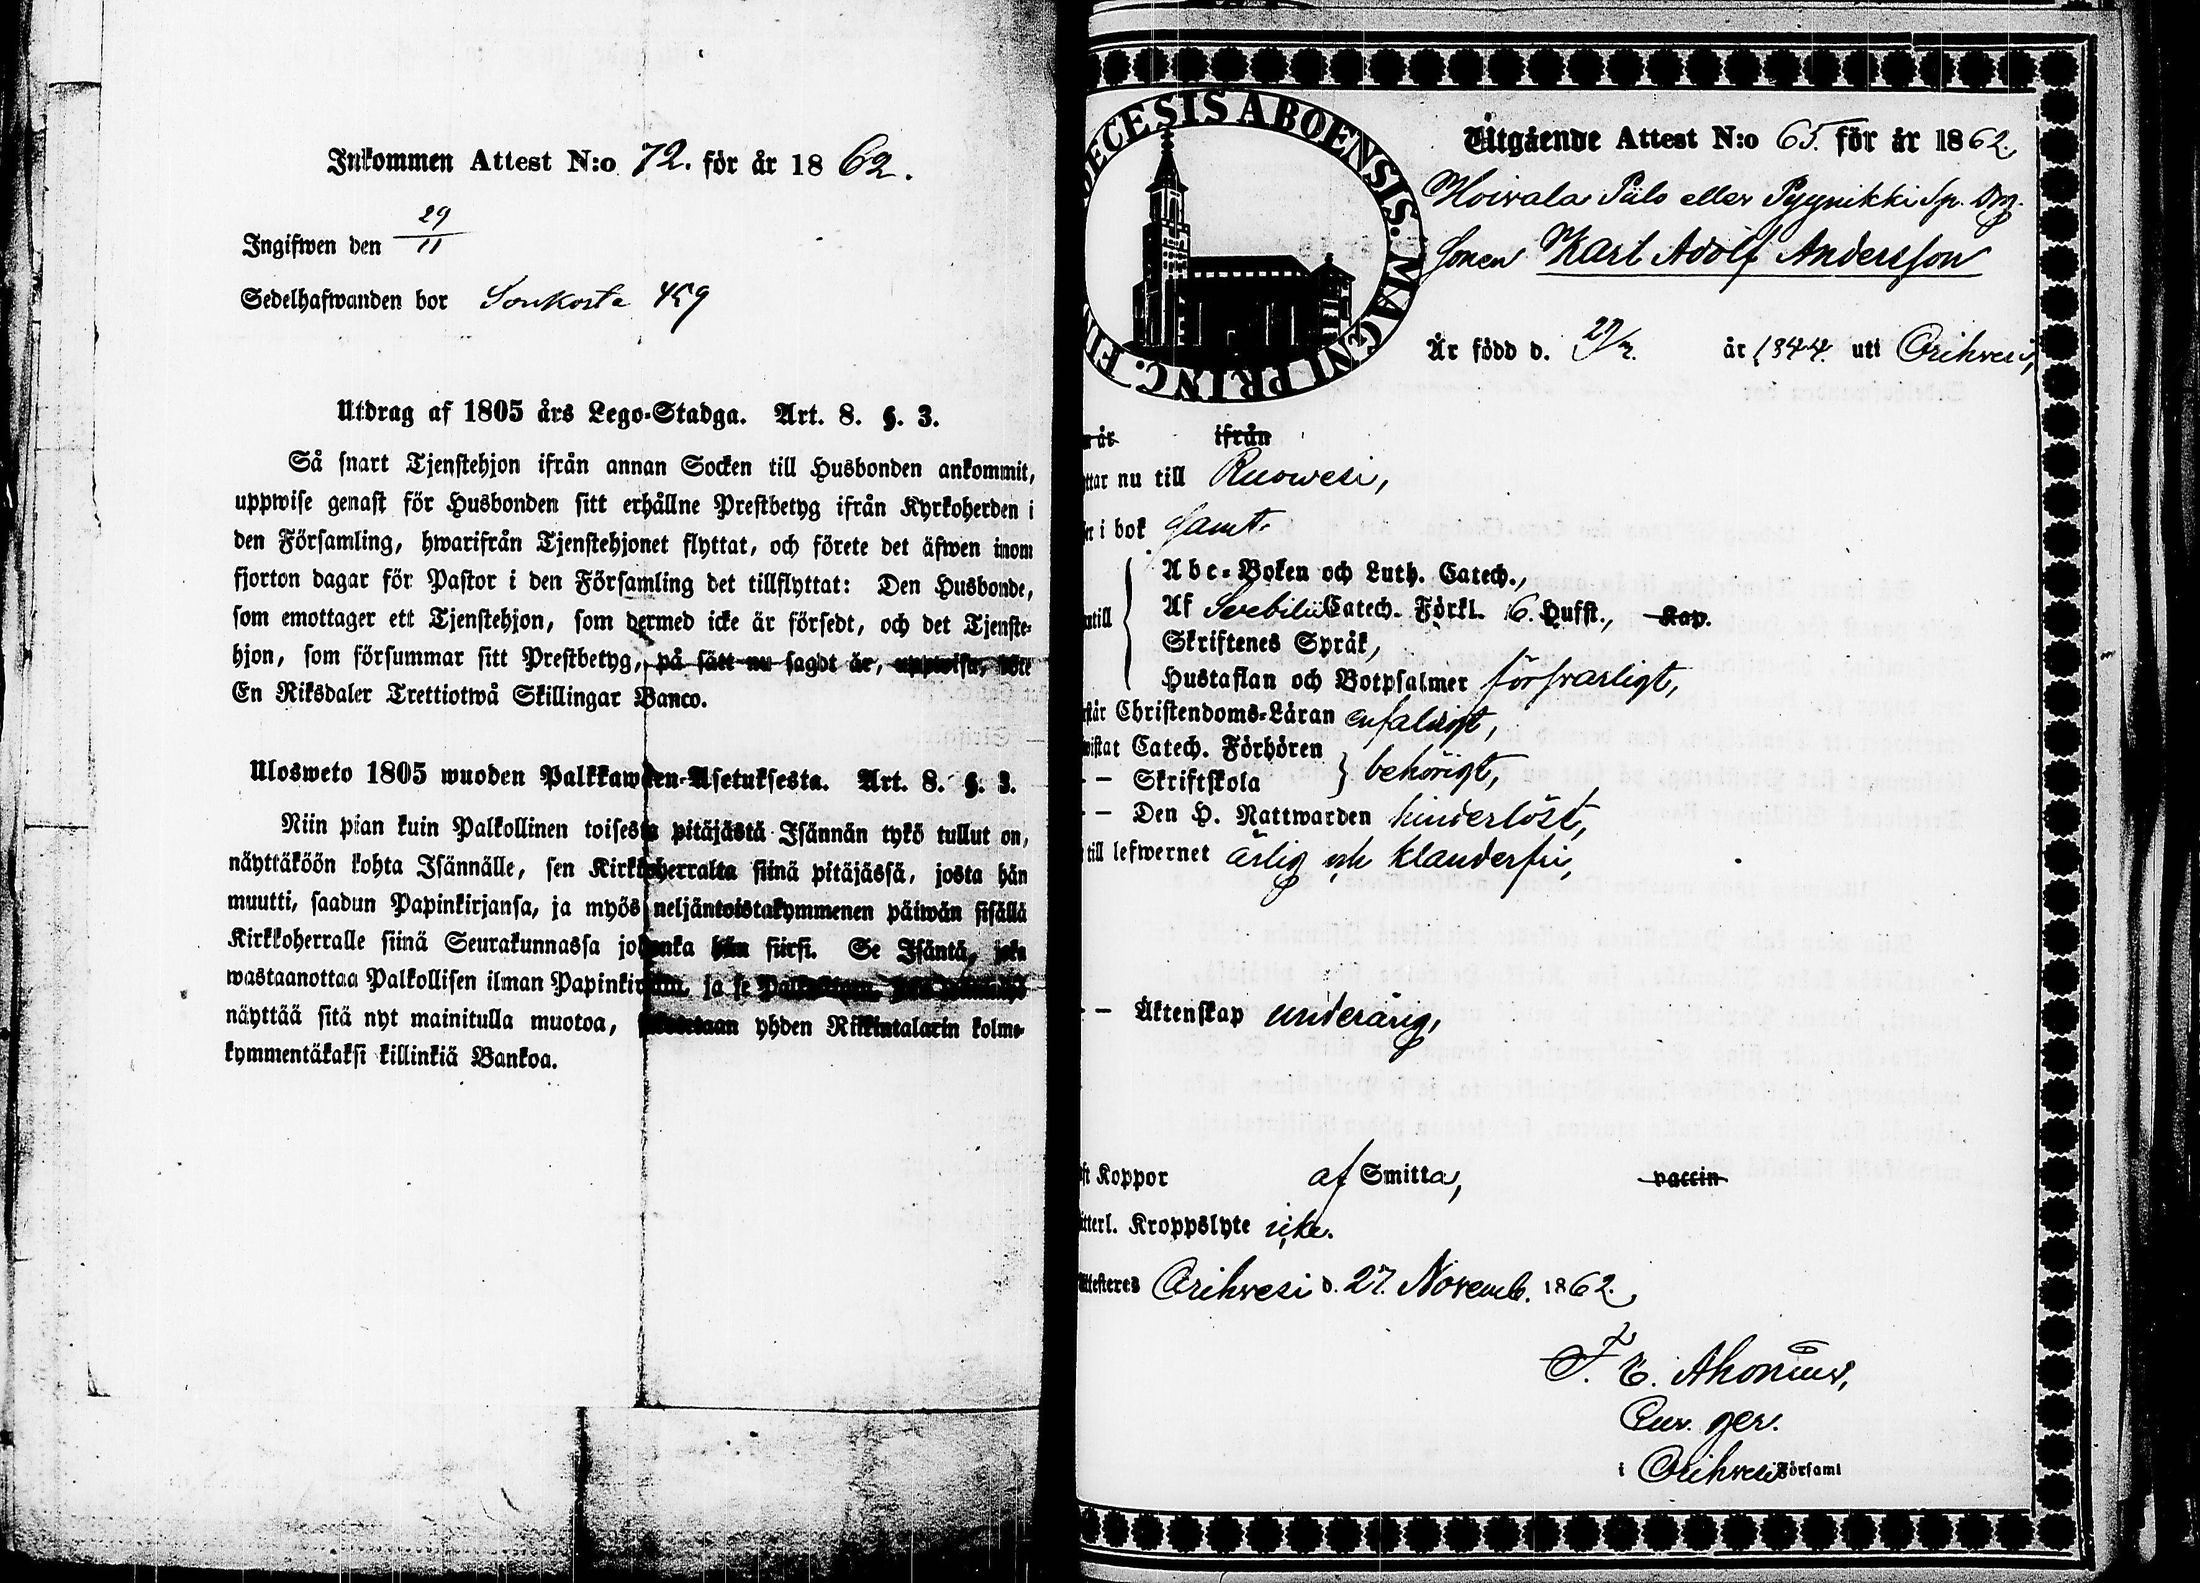 Inkommen Attest N:o 72. för år 1862.
Ingifwen den 29/11
Sedelhafwanden bor 459
Utdrag af 1805 års Lego-Stadga. Art. 8. §. 3.
Så snart Tjenstehjon ifrån annan Socken till Husbonden ankommit,
uppwise genast för Husbonden sitt erhållne Prestbetyg ifrån Kyrkoherden i
den Församling, hwarifrån Tjenstehjonet flyttat, och förete det äfwen inom
fjorton dagar för Pastor i den Församling det tillflyttat: Den Husbonde,
som emottager ett Tjenstehjon, som dermed icke är försedt, och det Tjenste-
hjon, som försummar sitt Prestbetyg, på sätt nu sagdt är, uppwisa, böte
En Riksdaler Trettiotwå Skillingar Banco.
Ulosweto 1805 wuoden Palkkawäen-Asetuksesta. Art. 8. §. 3.
Niin pian kuin Palkollinen toisesta pitäjästä Isännän tykö tullut on,
näyttäköön kohta Isännälle, sen Kirkkoherralta siinä pitäjässä, josta hän
muutti, saadun Papinkirjansa, ja myös neljäntoistakymmenen päiwän sisällä
Kirkkoherralle siinä Seurakunnassa johonka hän siirsi. Se Isäntä, joka
wastaanottaa Palkollisen ilman Papinkirjata, ja se
näyttää sitä nyt mainitulla muotoa, yhden Riikintalarin kolme-
kymmentäkaksi killinkiä Bankoa.
DECESIS ABOENSIS. MAGNI PRINC. FIN
Utgående Attest N:o 65. för år 1862.
Hoivala Piilo eller Pyynikki Sp. Drg.
Sonen Karl Adolf Andersson
Är född d. år 1844. uti Orihvesi,
år ifrån
ttar nu till Ruowesi,
i bok samt
ntill
Abc-Boken och Luth. Catech.,
Af Svebilii Catech. Förkl. 6. Hufst., Kap.
Skriftenes Språk,
Hustaflan och Botpsalmer försvarligt,
står Christendoms-Läran enfaldigt,
wistat Catech. Förhören
– – Skriftskola } behörigt,
– – Den H. Nattwarden hinderlöst,
till lefwernet ärlig och klanderfri,
– – Äktenskap underårig,
ft Koppor af Smitta, vaccin
tterl. Kroppslyte icke.
Attesteres Orihvesi d. 27. Novemb. 1862.
F. E. Ahonius,
Cur. ger.
i Orihvesi Församl